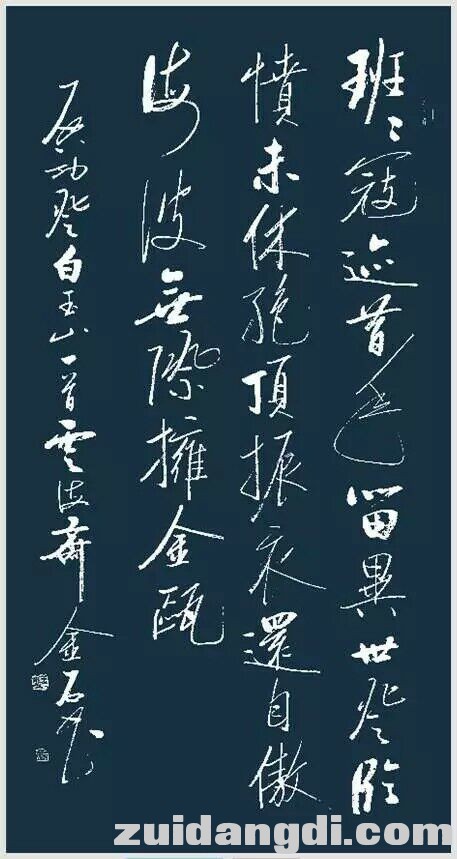 班〻寇迹昔留異世登臨
憤未休絕頂振衣還自傲
海波無際擁金甌
啟功登白玉山一首雲海齋金石
zuidangdi.com